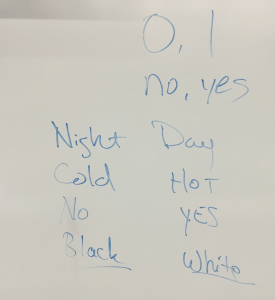 0, 1
no, yes
Night Day
Cold HOT
No YES
Black White